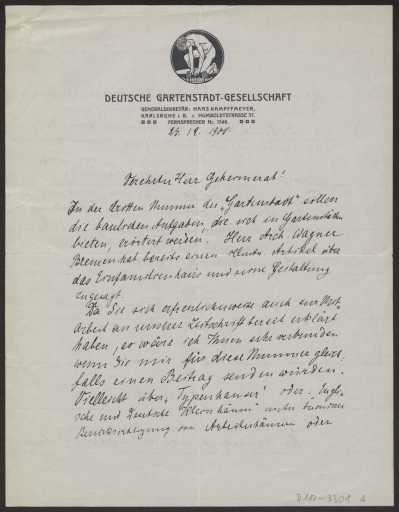 DEUTSCHE GARTENSTADT-GESELLSCHAFT
GENERALSEKRETÄR: HANS KAMPFFMEYER,
KARLSRUHE i. B. HUMBOLDTSTRASSE 31.
FERNSPRECHER Nr.
Verehrter Herr Geheimerat!
In der dritten Nummer der "Gartenstadt" sollen
die baulichen Aufgaben, die sich in Gartenstädten
bieten, erörtert werden. Herr Arch. Wagner
Bremen hat bereits einen Artikel über
das Einfamilienhaus und seine Gestaltung
zugesagt.
Da Sie sich erfreulicherweise auch zur Mit-
Arbeit an unserer Zeitschrift bereit erklärt
haben, so wäre ich Ihnen sehr verbunden
wenn Sie mir für diese Nummer gleich-
falls einen Beitrag senden würden.
Vielleicht über "Typenhäuser" oder "Engli-
sche und Deutsche Kleinhäuser" unter
Berücksichtigung von Arbeiterhäusern oder